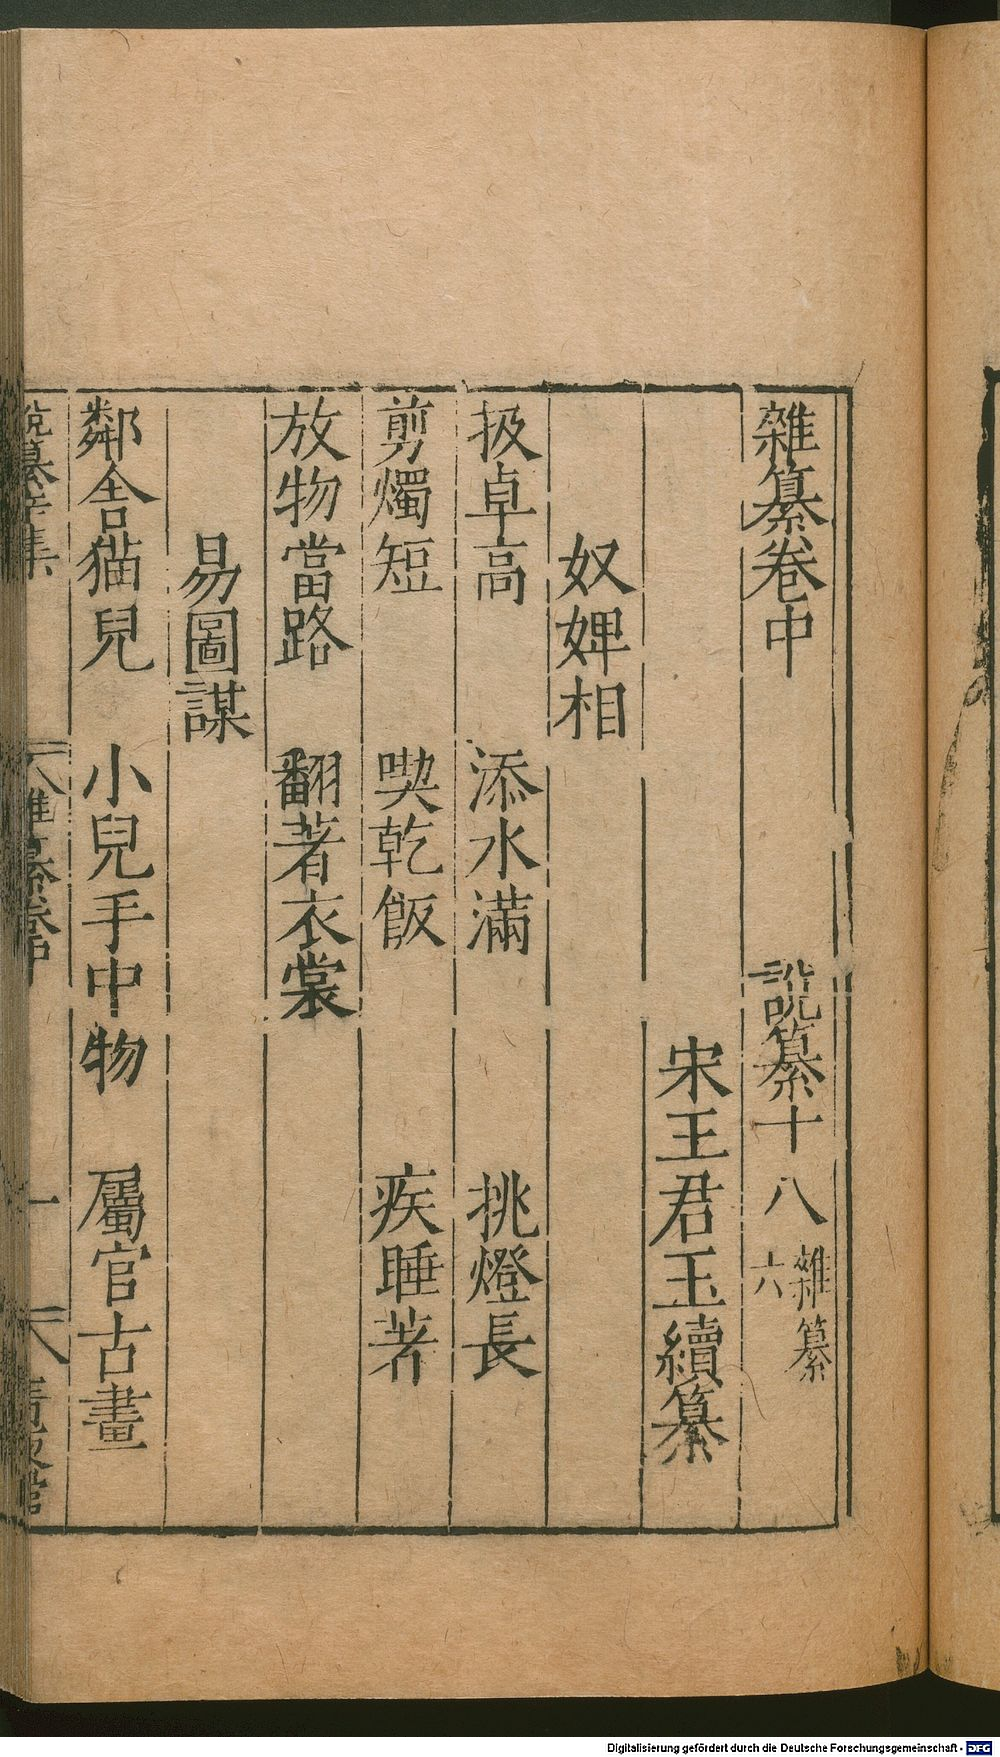 雜纂卷中 說纂十八 雜纂六
宋王君玉續纂
奴婢相
扱卓高 添水滿 挑燈長
剪燭短 喫乾飯 疾睡著
放物當路 翻著衣裳
易圖謀
鄰舍猫兒 小兒手中物 屬官古畫
說纂辛集 雜纂卷中 一
Digitalisierung gefördert durch die Deutsche Forschungsgemeinschaft - DFG